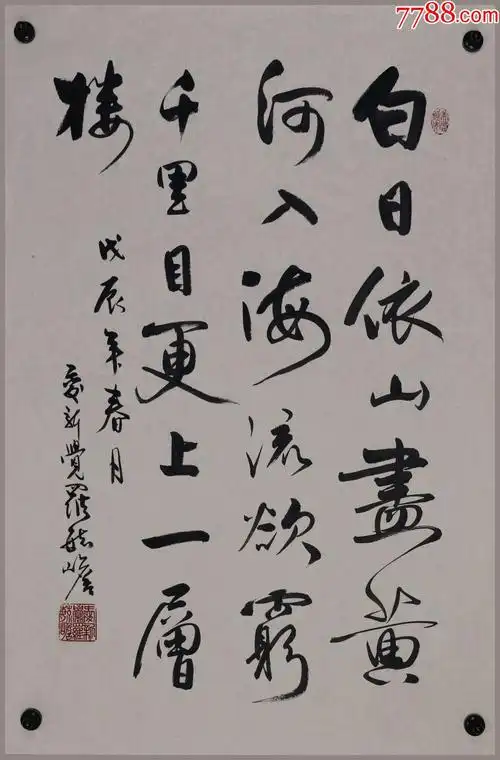 7788.com
白日依山盡黄
河入海流欲窮
千里目更上一層
楼
戊辰年春月
愛新覺羅毓嶦